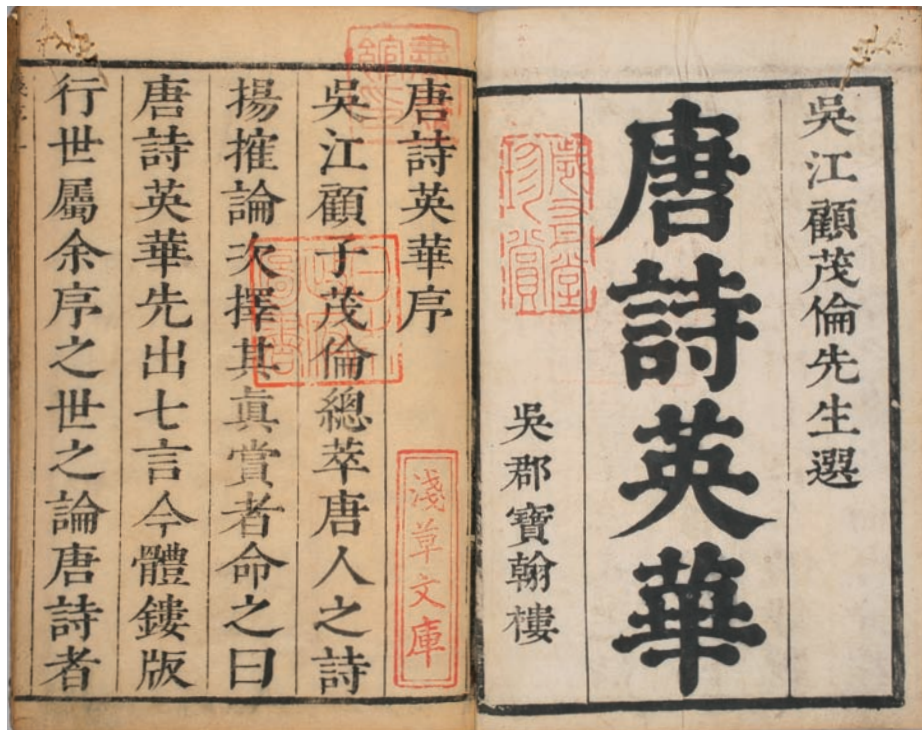 吳江顧茂倫先生選
唐詩英華
吳郡寶翰樓
唐詩英華序
淺草文庫
吳江顧子茂倫總萃唐人之詩
揚搉論次擇其真賞者命之曰
唐詩英華先出七言今體鏤版
行世屬余序之世之論唐詩者